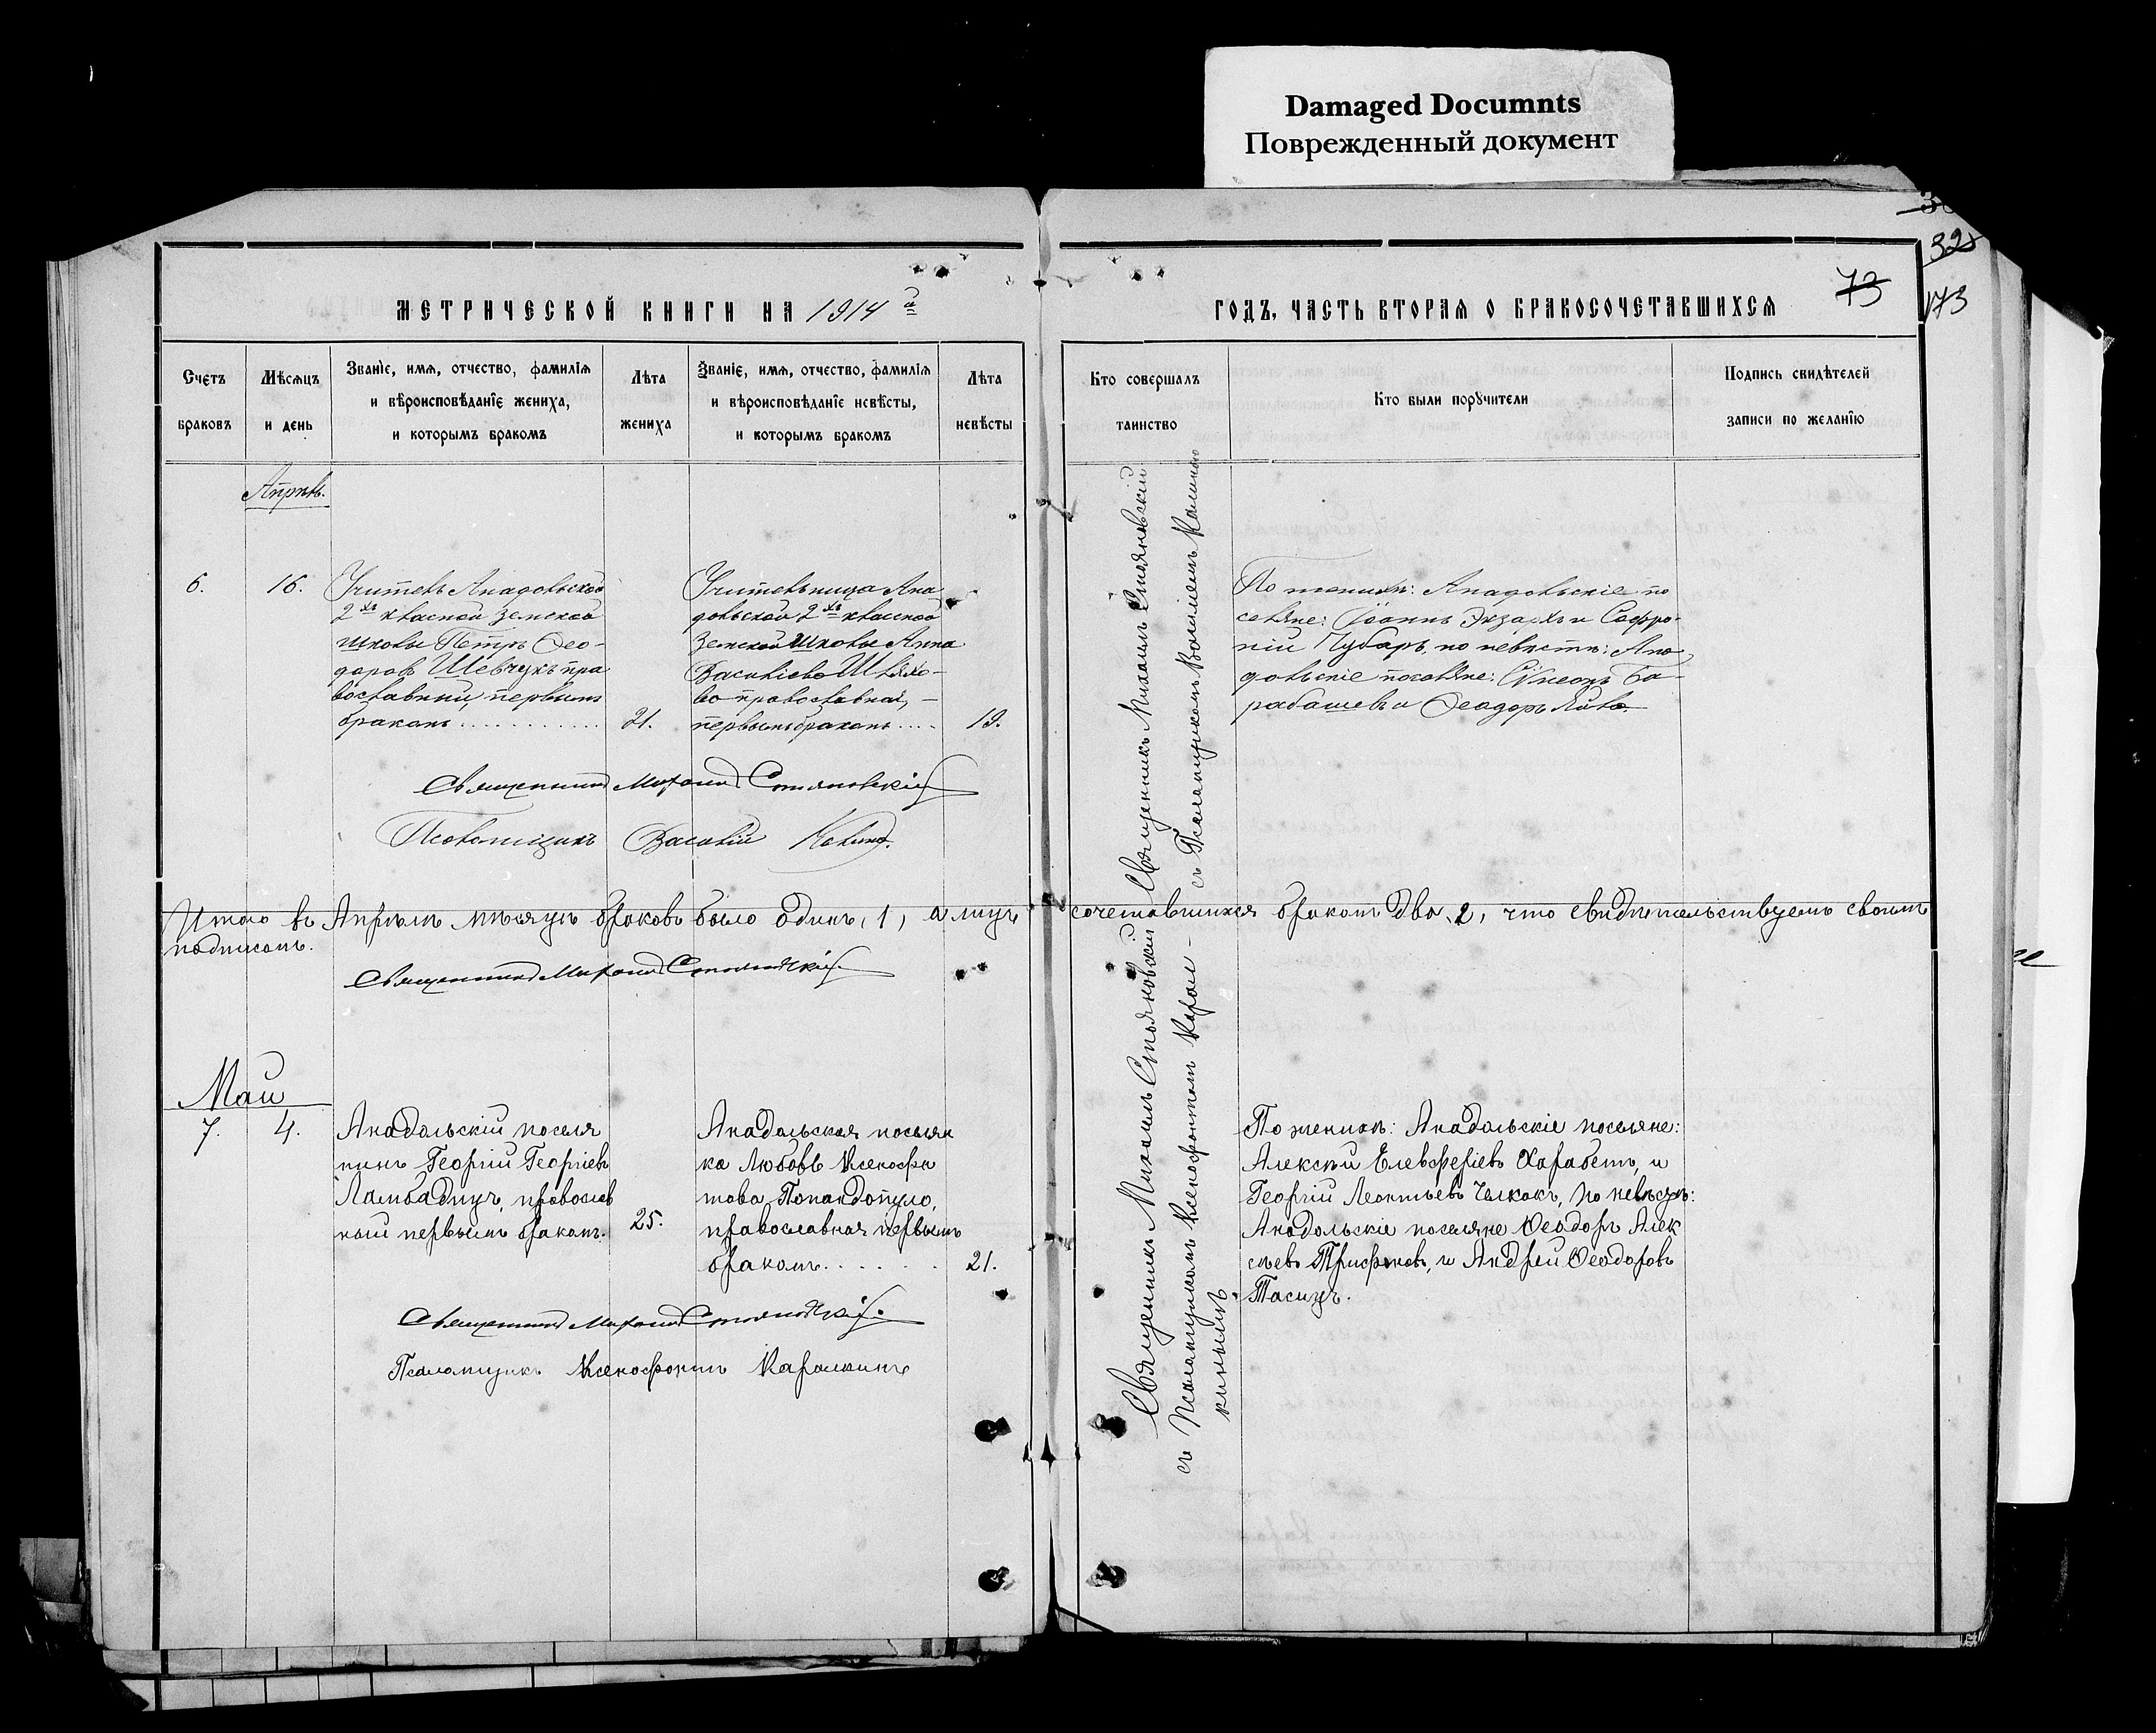 Damaged Documnts
Поврежденный документ
32
73
173
МЕТРИЧЕСКОЙ КНИГИ НА 1914 й
ГОДЪ, ЧАСТЬ ВТОРАЯ О БРАКОСОЧЕТАВШИХСЯ
Счетъ браковъ
Мѣсяцъ и день
Званіе, имя, отчество, фамилія
и вѣроисповѣданіе жениха,
и которымъ бракомъ
Лѣта жениха
Званіе, имя, отчество, фамилія
и вѣроисповѣданіе невѣсты,
и которымъ бракомъ
Лѣта невѣсты
Кто совершалъ таинство
Кто были поручители
Подпись свидѣтелей
записи по желанію
Апрѣль.
6.
16.
Учитель Анадольской
2 хъ классной Земской
школы Петръ Ѳео-
доровъ Шевчукъ пра
вославный, первымъ
бракомъ
21.
Учительница Ана
дольской 2 хъ классной
Земской школы Анна
Василіева
во православная,
первымъ бракомъ
19.
Священникъ Михаилъ Стояновскій
съ Псаломщикомъ Василіемъ Калиною
По женихѣ: Анадольскіе по
селяне: Іоаннъ Экзархъ и Софро-
ній Чубаръ, по невѣстѣ: Ана
дольскіе поселяне: Сѵмеонъ Ба-
рабашевъ и Ѳеодоръ
Священникъ Михаилъ Стояновскій
Псаломщикъ Василій Калина.
Итого въ Апрѣлѣ мѣсяцѣ браковъ было одинъ, 1, а лицъ сочетавшихся бракомъ два, 2, что свидѣтельствуемъ своимъ
подписомъ.
Священникъ Михаилъ Стояновскій
Май
7.
4.
Анадольскій поселя
нинъ Георгій Георгіевъ
Ламбадчуч, православ
ный первымъ бракомъ.
25.
Анадольская поселян
ка Любовь Ксенофон
това Попандопуло,
православная первымъ
бракомъ
21.
Священникъ Михаилъ Стояновскій
съ Псаломщикомъ Ксенофонтомъ Карал-
кинымъ.
По женихѣ: Анадольскіе поселяне:
Алексѣй Елевферіевъ Харабетъ, и
Георгій Леонтьевъ Челкакъ, по невѣстѣ:
Анадольскіе поселяне Ѳеодоръ Алек
сѣевъ Трифоновъ, и Андрей Ѳеодоровъ
Тасицъ.
Священникъ Михаилъ Стояновскій.
Псаломщикъ Ксенофонтъ Каралкинъ